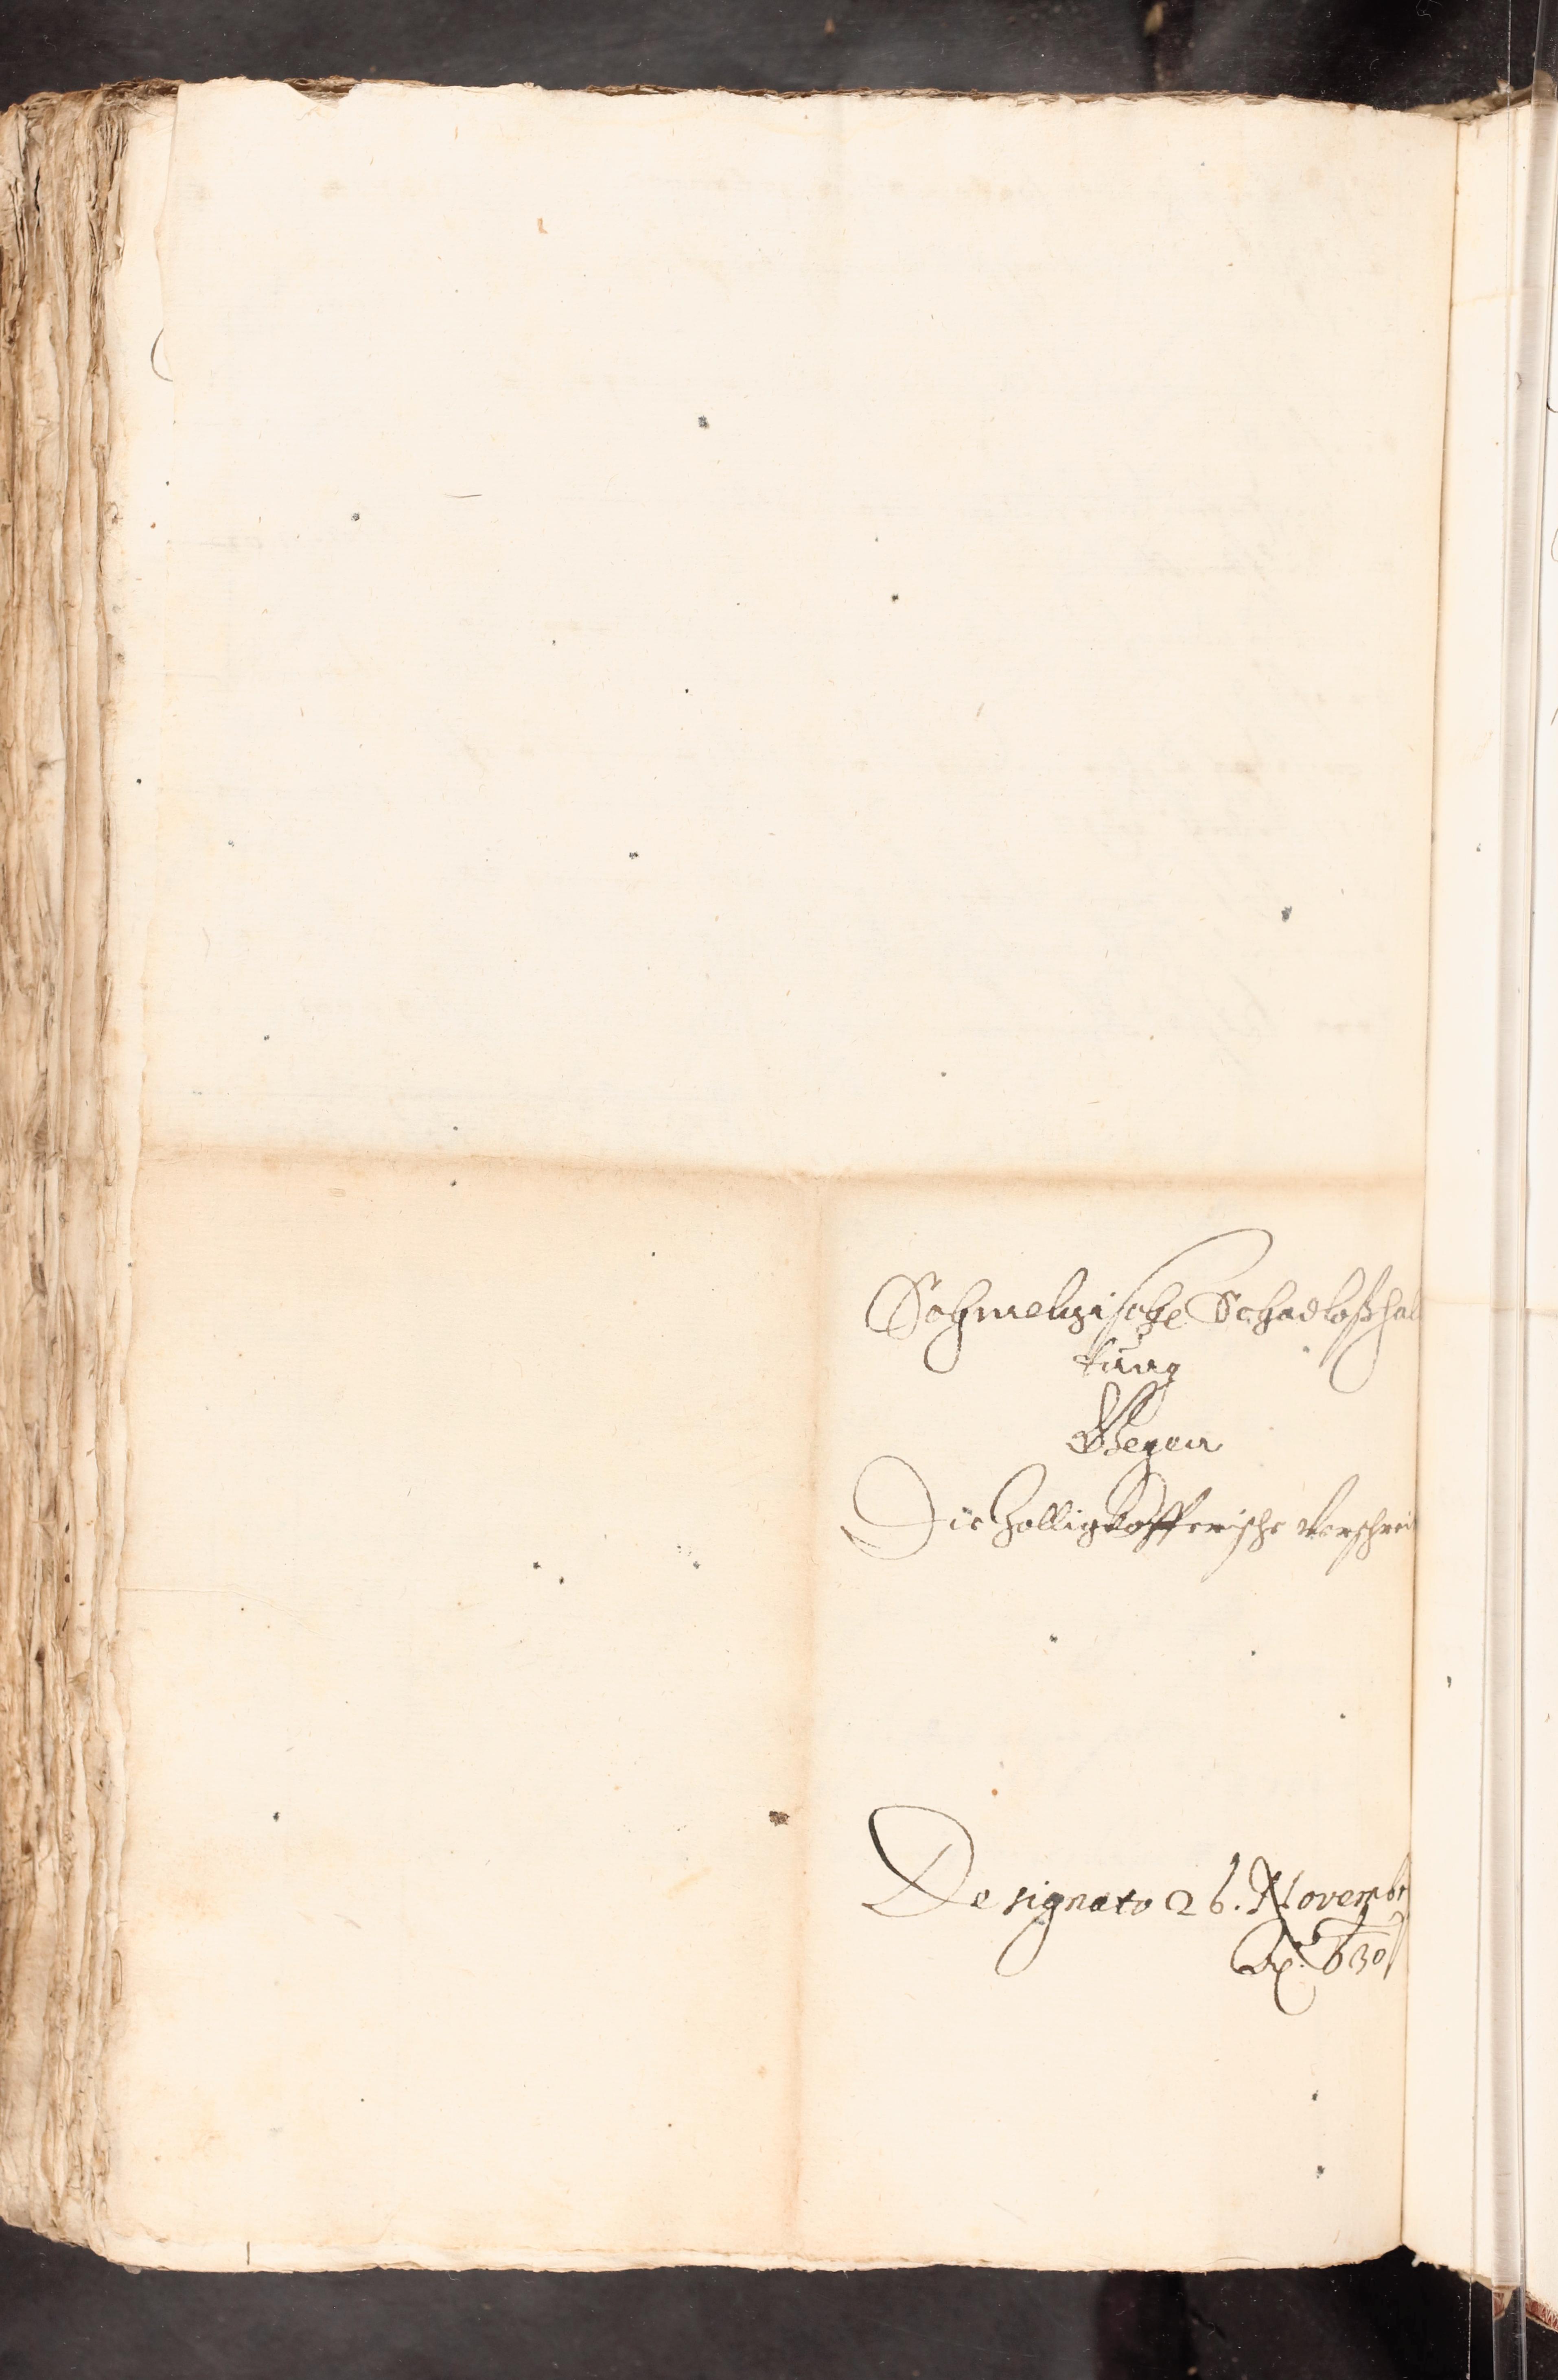 Schmelzische Schadloßhal
tung
Gegen
Die Zolligkofferische Verschreib
Designato 26. Novembr
Ao. 630